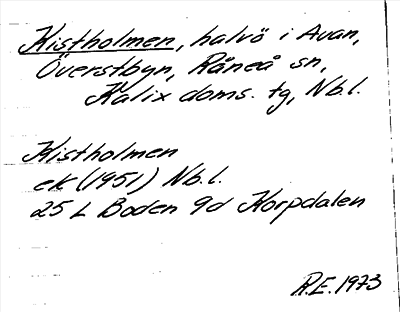 Kistholmen, halvö i Avan,
Överstbyn, Råneå sn,
Kalix doms. tg, Nb.l.
Kistholmen
ek (1951) Nb.l.
25 L Boden 9d Korpdalen
R.E. 1973